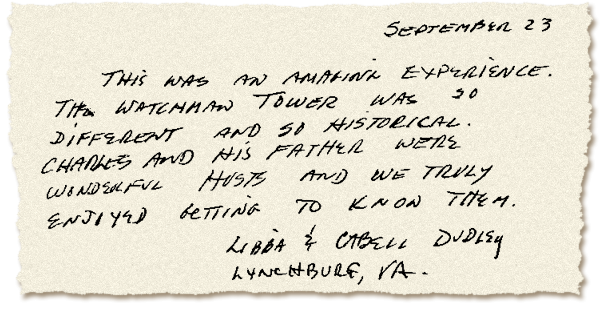 SEPTEMBER 23
THIS WAS AN AMAZING EXPERIENCE.
THE WATCHMAN TOWER WAS SO
DIFFERENT AND SO HISTORICAL.
CHARLES AND HIS FATHER WERE
WONDERFUL HOSTS AND WE TRULY
ENJOYED GETTING TO KNOW THEM.
LIBBA & CABELL DUDLEY
LYNCHBURG, VA.